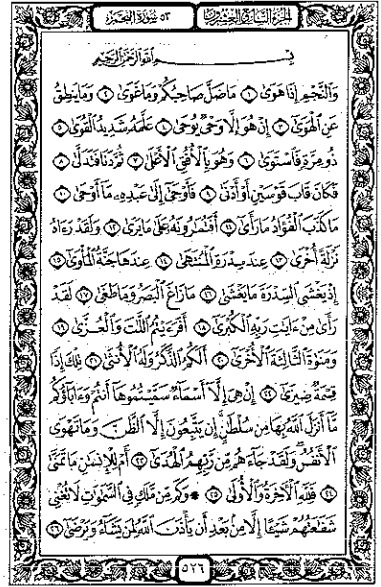 الجزء السابع والعشرون ٥٣ سورة النجم
بِسْمِ ٱللَّهِ ٱلرَّحْمَٰنِ ٱلرَّحِيمِ
وَٱلنَّجْمِ إِذَا هَوَىٰ ١ مَا ضَلَّ صَاحِبُكُمْ وَمَا غَوَىٰ ٢ وَمَا يَنطِقُ
عَنِ ٱلْهَوَىٰٓ ٣ إِنْ هُوَ إِلَّا وَحْىٌ يُوحَىٰ ٤ عَلَّمَهُۥ شَدِيدُ ٱلْقُوَىٰ ٥
ذُو مِرَّةٍ فَٱسْتَوَىٰ ٦ وَهُوَ بِٱلْأُفُقِ ٱلْأَعْلَىٰ ٧ ثُمَّ دَنَا فَتَدَلَّىٰ ٨
فَكَانَ قَابَ قَوْسَيْنِ أَوْ أَدْنَىٰ ٩ فَأَوْحَىٰٓ إِلَىٰ عَبْدِهِۦ مَآ أَوْحَىٰ ١٠
مَا كَذَبَ ٱلْفُؤَادُ مَا رَأَىٰٓ ١١ أَفَتُمَٰرُونَهُۥ عَلَىٰ مَا يَرَىٰ ١٢ وَلَقَدْ رَءَاهُ
نَزْلَةً أُخْرَىٰ ١٣ عِندَ سِدْرَةِ ٱلْمُنتَهَىٰ ١٤ عِندَهَا جَنَّةُ ٱلْمَأْوَىٰٓ ١٥
إِذْ يَغْشَى ٱلسِّدْرَةَ مَا يَغْشَىٰ ١٦ مَا زَاغَ ٱلْبَصَرُ وَمَا طَغَىٰ ١٧ لَقَدْ
رَأَىٰ مِنْ ءَايَٰتِ رَبِّهِ ٱلْكُبْرَىٰٓ ١٨ أَفَرَءَيْتُمُ ٱللَّٰتَ وَٱلْعُزَّىٰ ١٩
وَمَنَوٰةَ ٱلثَّالِثَةَ ٱلْأُخْرَىٰٓ ٢٠ أَلَكُمُ ٱلذَّكَرُ وَلَهُ ٱلْأُنثَىٰ ٢١ تِلْكَ إِذًا
قِسْمَةٌ ضِيزَىٰٓ ٢٢ إِنْ هِىَ إِلَّآ أَسْمَآءٌ سَمَّيْتُمُوهَآ أَنتُمْ وَءَابَآؤُكُم
مَّآ أَنزَلَ ٱللَّهُ بِهَا مِن سُلْطَٰنٍ إِن يَتَّبِعُونَ إِلَّا ٱلظَّنَّ وَمَا تَهْوَى
ٱلْأَنفُسُ وَلَقَدْ جَآءَهُم مِّن رَّبِّهِمُ ٱلْهُدَىٰٓ ٢٣ أَمْ لِلْإِنسَٰنِ مَا تَمَنَّىٰ
٢٤ فَلِلَّهِ ٱلْءَاخِرَةُ وَٱلْأُولَىٰ ٢٥ ۞ وَكَم مِّن مَّلَكٍ فِى ٱلسَّمَٰوَٰتِ لَا تُغْنِى
شَفَٰعَتُهُمْ شَيْـًٔا إِلَّا مِنۢ بَعْدِ أَن يَأْذَنَ ٱللَّهُ لِمَن يَشَآءُ وَيَرْضَىٰٓ ٢٦
٥٢٦